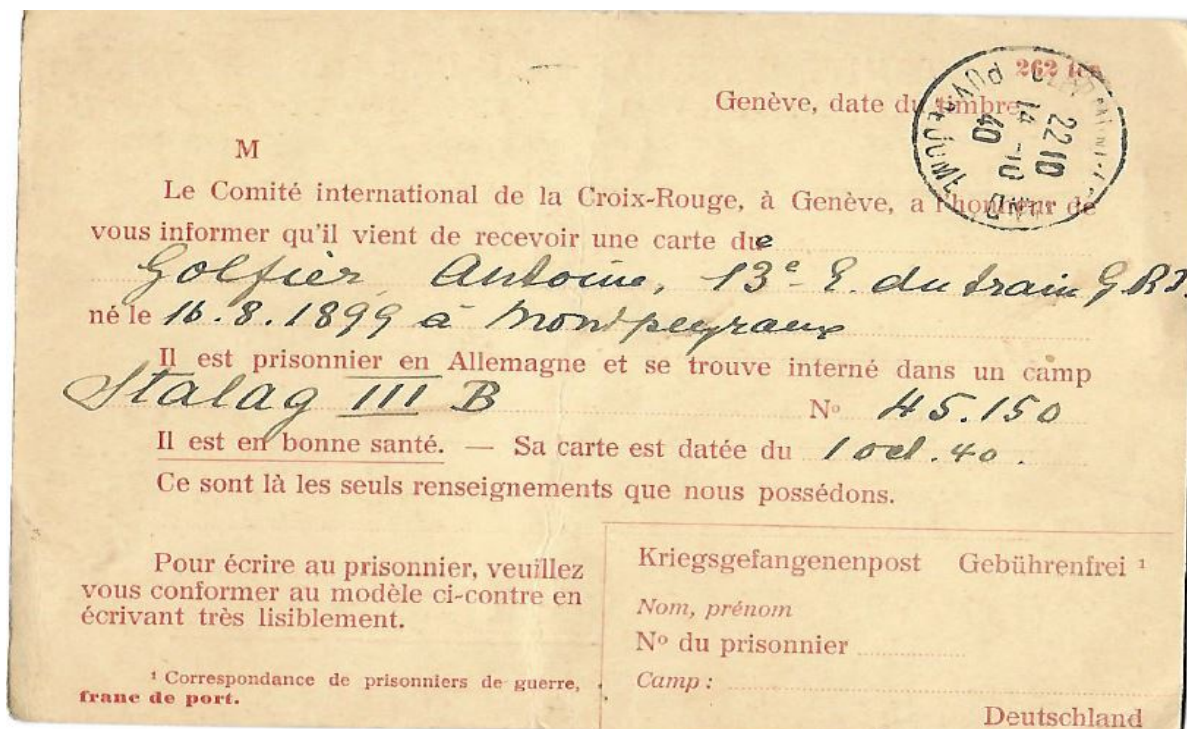 262
Genève, date du timbre
22 10
14 -10
40
PUY DE DÔME
M
Le Comité international de la Croix-Rouge, à Genève, a l'honneur de
vous informer qu'il vient de recevoir une carte de
Golfier Antoine, 13e E. du train G.R.D.
né le 16.8.1899 à Montpeyroux
Il est prisonnier en Allemagne et se trouve interné dans un camp
Stalag III B No 45.150
Il est en bonne santé. — Sa carte est datée du 1 oct. 40.
Ce sont là les seuls renseignements que nous possédons.
Pour écrire au prisonnier, veuillez
vous conformer au modèle ci-contre en
écrivant très lisiblement.
¹ Correspondance de prisonniers de guerre,
franc de port.
Kriegsgefangenenpost Gebührenfrei ¹
Nom, prénom
No du prisonnier
Camp :
Deutschland